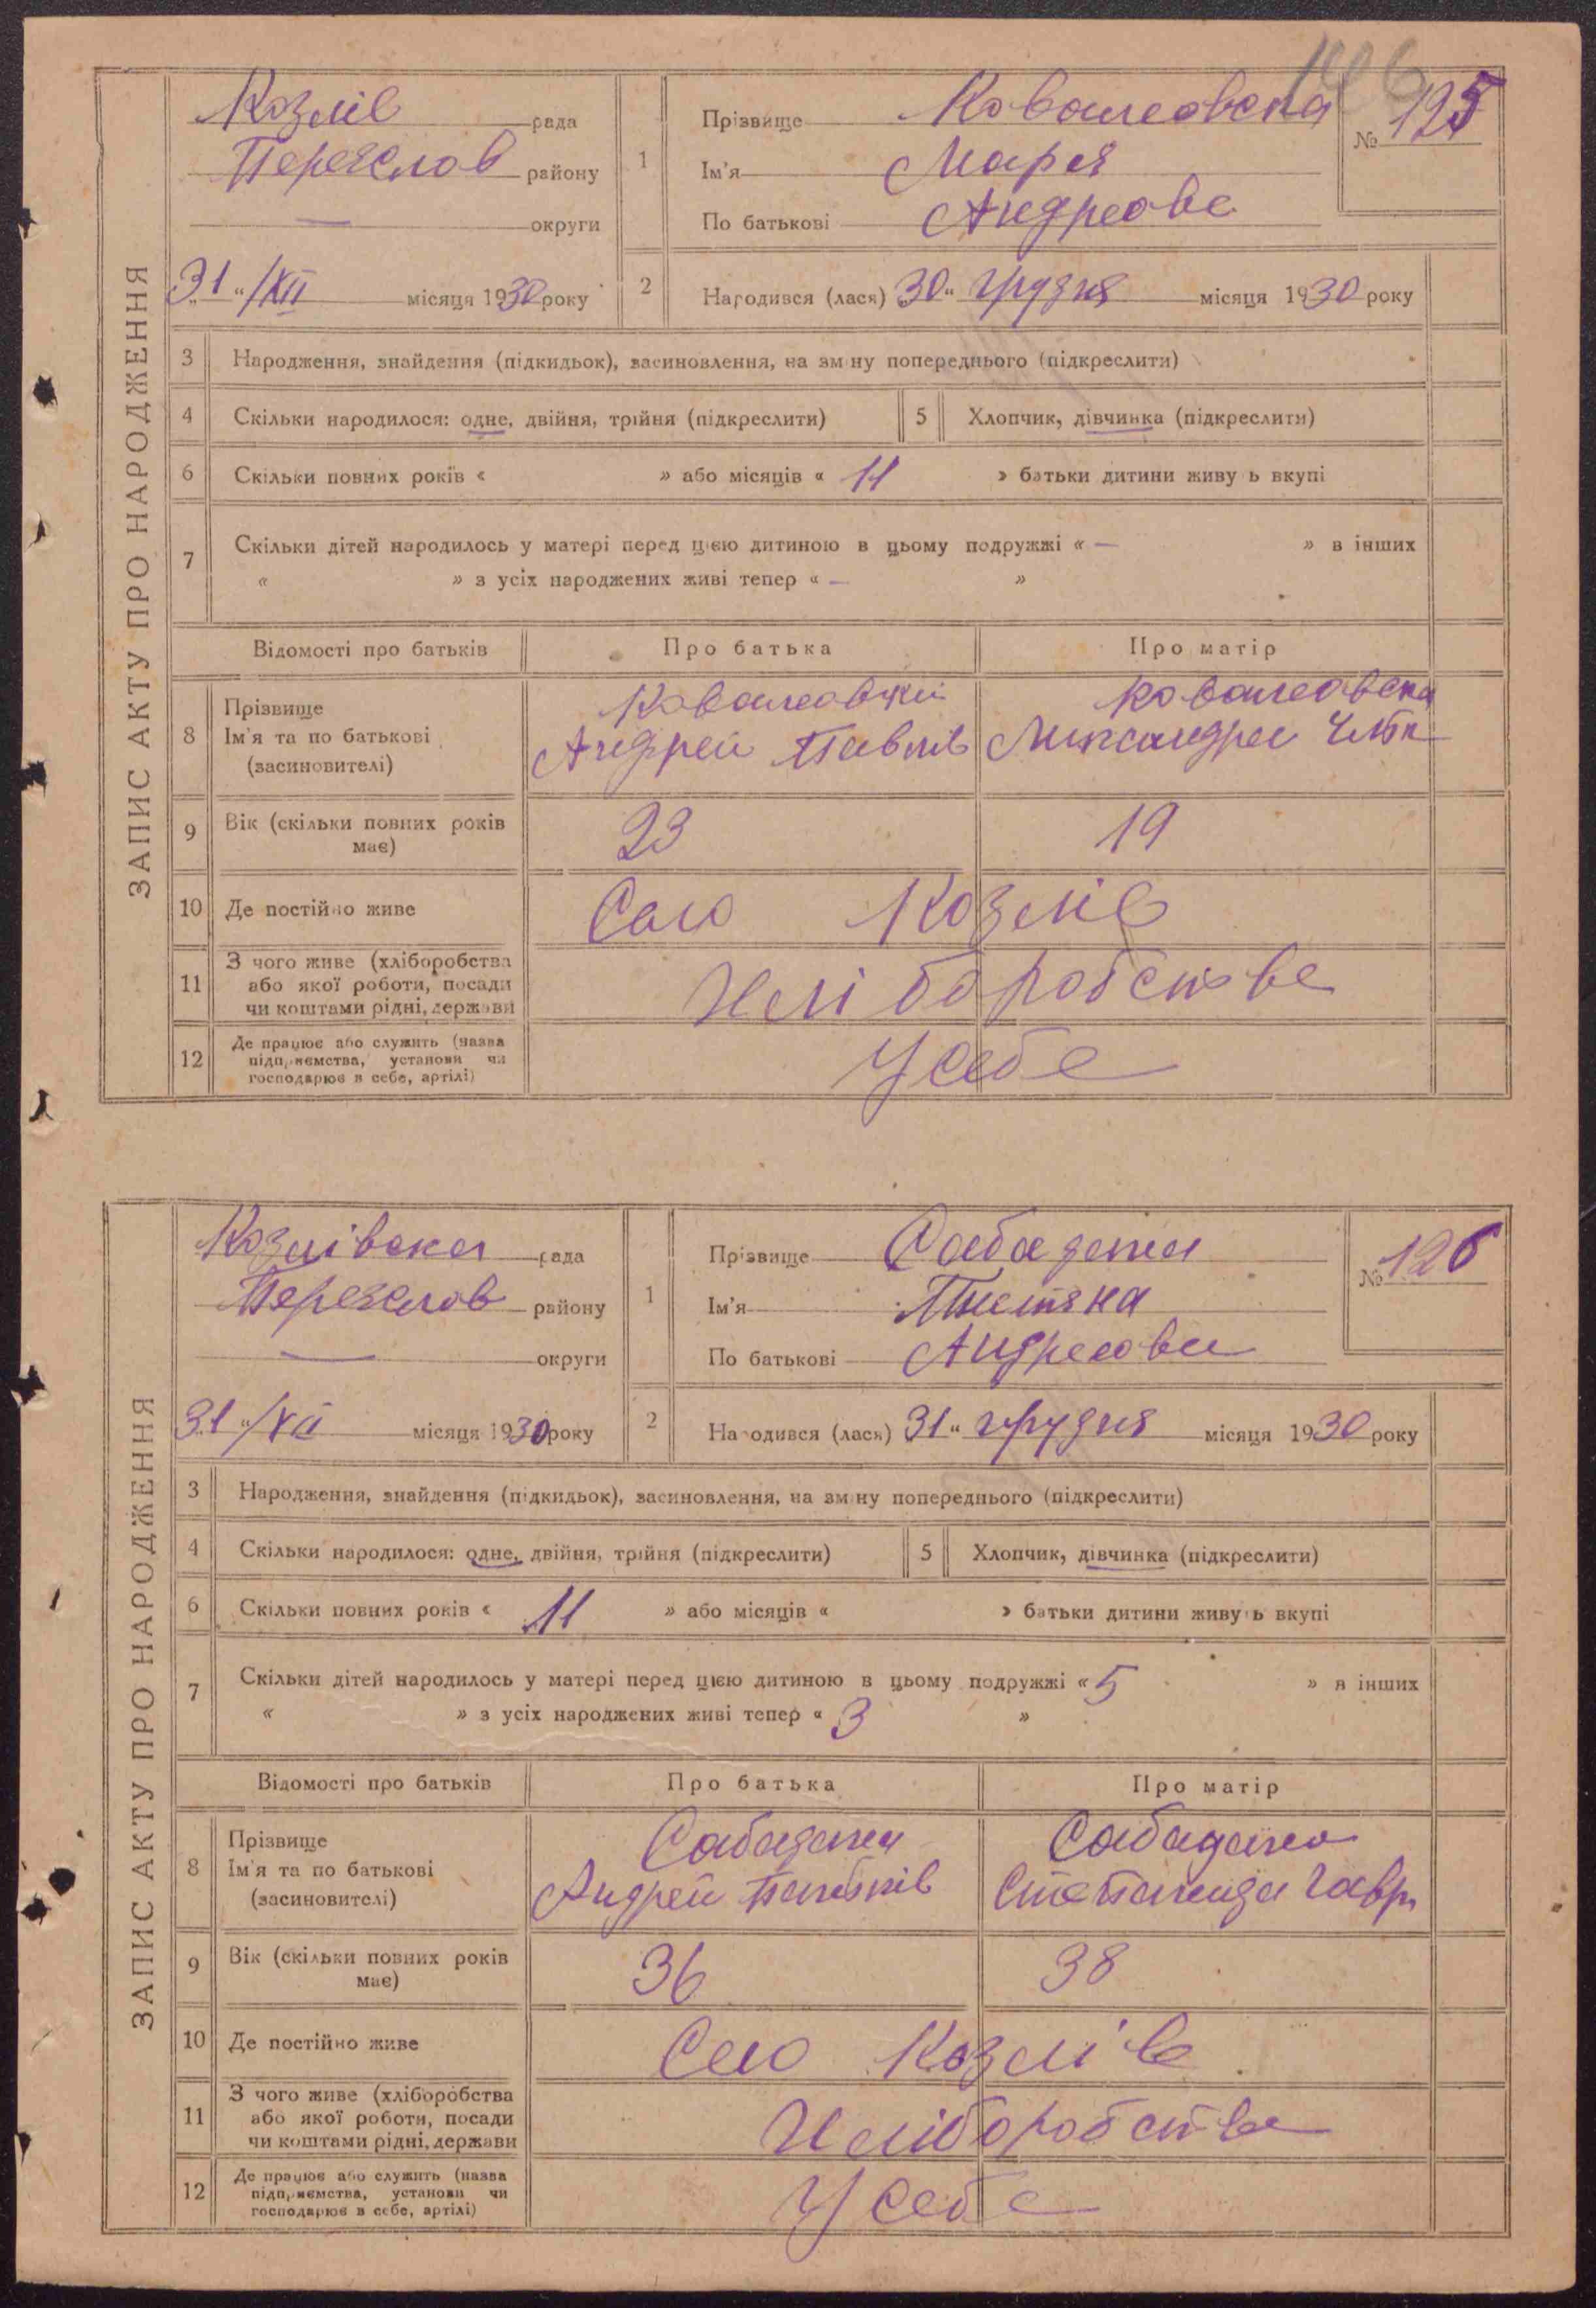 ЗАПИС АКТУ ПРО НАРОДЖЕННЯ
Козлів рада
Переяслов району
— округи
31 "/XII місяця 1930 року
1 Прізвище Ковалеовска
Ім'я Марія
По батькові Андреова
№ 125
2 Народився (лася) 30 " грудня місяця 1930 року
3 Народження, знайдення (підкидьок), засиновлення, на зміну попереднього (підкреслити)
4 Скільки народилося: одне, двійня, трійня (підкреслити)
5 Хлопчик, дівчинка (підкреслити)
6 Скільки повних років « » або місяців « 11 » батьки дитини живуть вкупі
7 Скільки дітей народилось у матері перед цією дитиною в цьому подружжі « — » в інших
« » з усіх народжених живі тепер « — »
Відомості про батьків Про батька Про матір
8 Прізвище
Ім'я та по батькові
(засиновителі)
Андрей Павлів
Ковалеовска
9 Вік (скільки повних років має) 23 19
10 Де постійно живе Село Козлів
11 З чого живе (хліборобства
або якої роботи, посади
чи коштами рідні, держави
Хліборобства
12 Де працює або служить (назва
підприємства, установи чи
господарює в себе, артілі)
У себе
ЗАПИС АКТУ ПРО НАРОДЖЕННЯ
Козлівска рада
Переяслов району
— округи
31 "/XII місяця 1930 року
1 Прізвище Сабадата
Ім'я Тистяна
По батькові Андреова
№ 126
2 Народився (лася) 31 " грудня місяця 1930 року
3 Народження, знайдення (підкидьок), засиновлення, на зміну попереднього (підкреслити)
4 Скільки народилося: одне, двійня, трійня (підкреслити)
5 Хлопчик, дівчинка (підкреслити)
6 Скільки повних років « 11 » або місяців « » батьки дитини живуть вкупі
7 Скільки дітей народилось у матері перед цією дитиною в цьому подружжі « 5 » в інших
« » з усіх народжених живі тепер « 3 »
Відомості про батьків Про батька Про матір
8 Прізвище
Ім'я та по батькові
(засиновителі)
Андрей
Степанида Гавр
9 Вік (скільки повних років має) 36 38
10 Де постійно живе Село Козлів
11 З чого живе (хліборобства
або якої роботи, посади
чи коштами рідні, держави
Хліборобства
12 Де працює або служить (назва
підприємства, установи чи
господарює в себе, артілі)
У себе